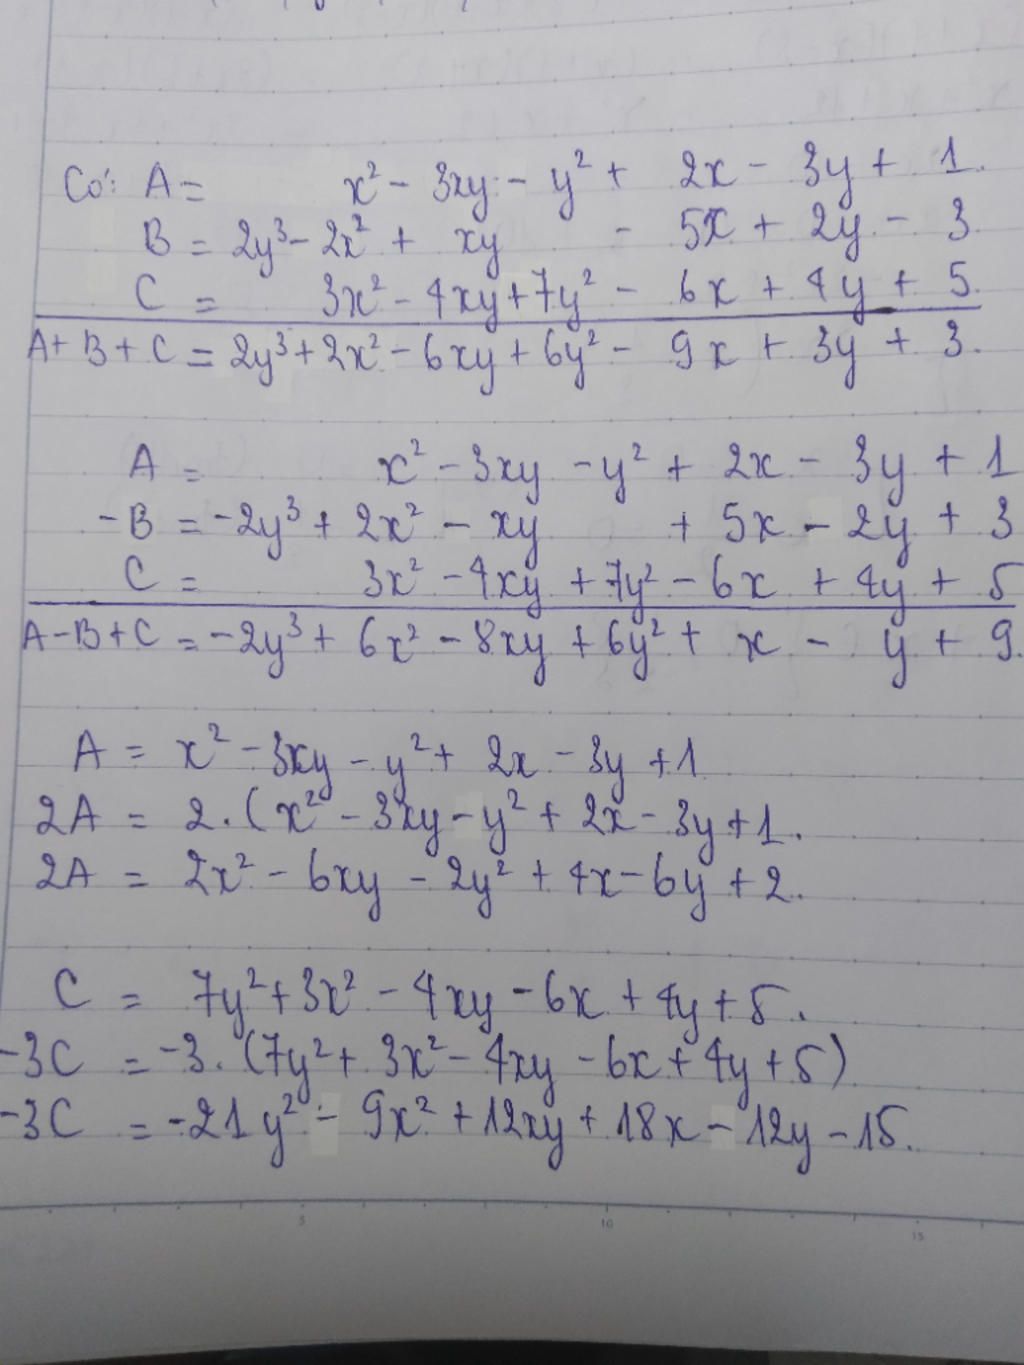 Có: A = x² - 3xy - y² + 2x - 3y + 1.
B = 2y³ - 2x² + xy - 5x + 2y - 3
C = 3x² - 4xy + 7y² - 6x + 4y + 5.
A + B + C = 2y³ + 2x² - 6xy + 6y² - 9x + 3y + 3.
A = x² - 3xy - y² + 2x - 3y + 1
-B = -2y³ + 2x² - xy + 5x - 2y + 3
C = 3x² - 4xy + 7y² - 6x + 4y + 5
A - B + C = -2y³ + 6x² - 8xy + 6y² + x - y + 9.
A = x² - 3xy - y² + 2x - 3y + 1
2A = 2.(x² - 3xy - y² + 2x - 3y + 1.
2A = 2x² - 6xy - 2y² + 4x - 6y + 2.
C = 7y² + 3x² - 4xy - 6x + 4y + 5.
-3C = -3.(7y² + 3x² - 4xy - 6x + 4y + 5)
-3C = -21y² - 9x² + 12xy + 18x - 12y - 15.
5 10 15